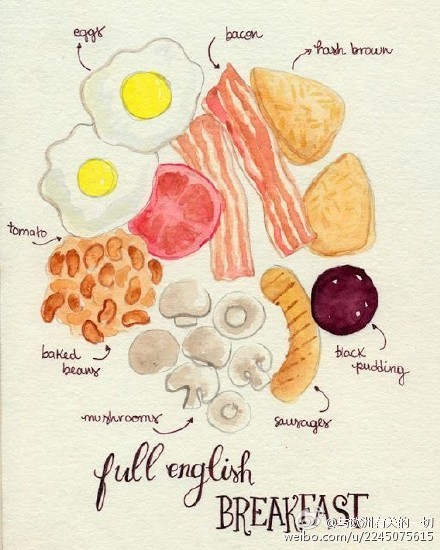 eggs
bacon
hash brown
tomato
baked
beans
black
pudding
mushrooms
sausages
full english
BREAKFAST
@与欧洲有关的一切
weibo.com/u/2245075615